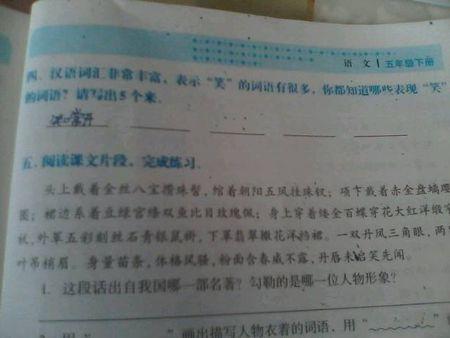 语文 | 五年级下册
四、汉语词汇非常丰富，表示“笑”的词语有很多，你都知道哪些表现“笑”
的词语？请写出5个来。
五、阅读课文片段，完成练习。
头上戴着金丝八宝攒珠髻，绾着朝阳五凤挂珠钗；项下戴着赤金盘螭璎
圈；裙边系着豆绿宫绦双鱼比目玫瑰佩；身上穿着缕金百蝶穿花大红洋缎窄
袄，外罩五彩刻丝石青银鼠褂，下罩翡翠撒花洋绉裙。一双丹凤三角眼，两
叶吊梢眉。身量苗条，体格风骚，粉面含春威不露，丹唇未启笑先闻。
1. 这段话出自我国哪一部名著？勾勒的是哪一位人物形象？
”画出描写人物衣着的词语，用“